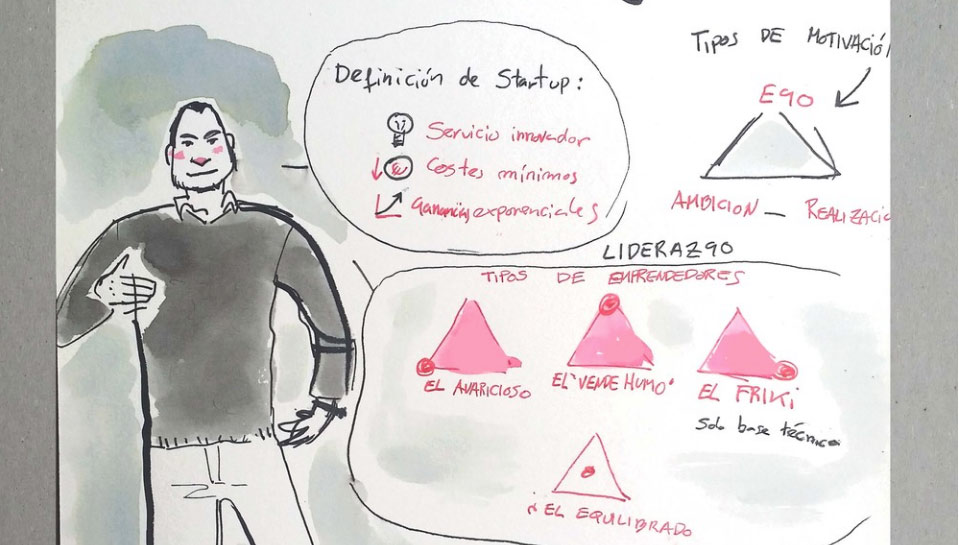 Definición de Startup:
Servicio innovador
Costes mínimos
Ganancias exponenciales
TIPOS DE MOTIVACIÓN
EGO
AMBICION — REALIZACIO
LIDERAZGO
TIPOS DE EMPRENDEDORES
EL AVARICIOSO
EL "VENDE HUMO"
EL FRIKI
Solo base técnica
¡ EL EQUILIBRADO